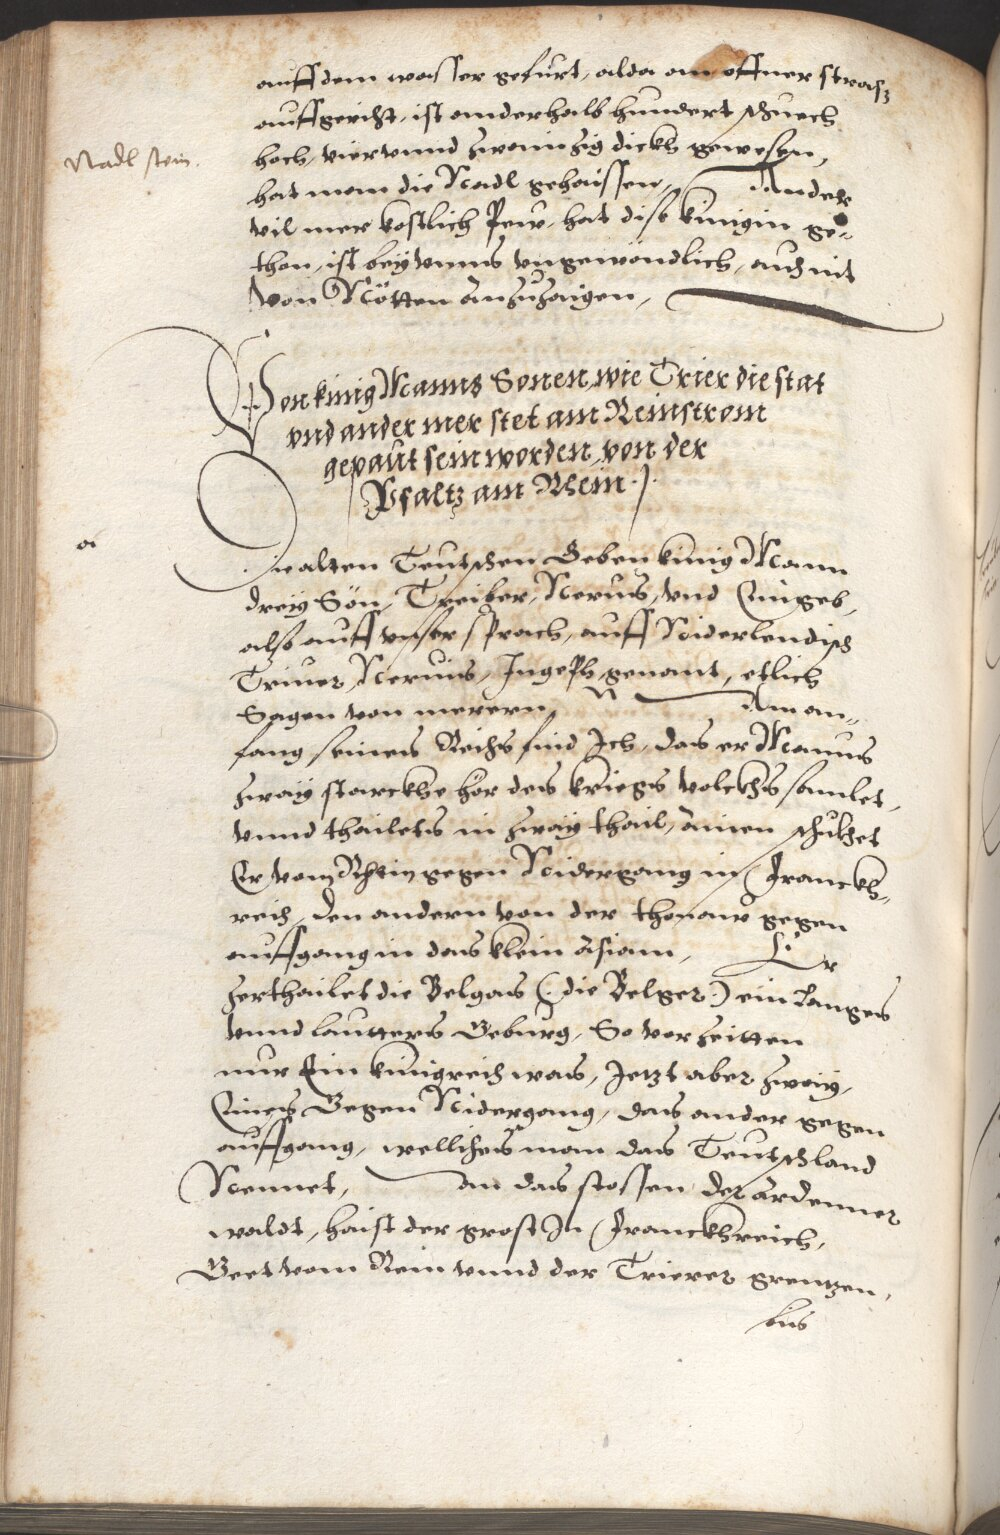 auff dem wasser gefürt, alda an offner strass
auffgericht, ist anderhalb hundert schuech
hoch, vierunnd zwainzig dickh gewesen,
Nadl stein.
hat man die Nadl gehaissen, Ander
vil mer kostlich Pew, hat dise künigin ge„
than, ist bey unns ungewöndlich, auch nit
von Nötten anzuzaigen,
Von künig Manns Sonen, wie Trier die stat
vnd ander mer stet am Reinstrom
gepaut sein worden, von der
Pfaltz am Rhein.
a
Die alten Teutschen Geben künig Mann
dreÿ Sön, Treiber, Nerus, vnd Eingeb,
also auff vnser sprach, auff Niderlendisch
Triuer, Neruius, Ingeph, genant, etlich
Sagen von merern, Am an„
fang seines Reichs find Ich, das er Manus
zwaÿ starckhe hör des kriegs volckhs samlet,
vnnd thailets in zwaÿ thail, ainen schickhet
Er vom Rhein gegen Nidergang in Franckh„
reich, den andern von der thonaw gegen
auffgang in das klein asiam, Er
zerthailet die Belgas (die Belger) ein langes
vnnd lautters Geburg, So vor zeitten
nur Ein künigreich was, Jetzt aber zwaÿ,
Eines Gegen Nidergang, das ander gegen
auffgang, wellches man das Teutschland
Nennet, an das stossen der ardenner
waldt, haist der grost In Franckhreich,
Geet vom Rein vnnd der Trierer grentzen,
bis